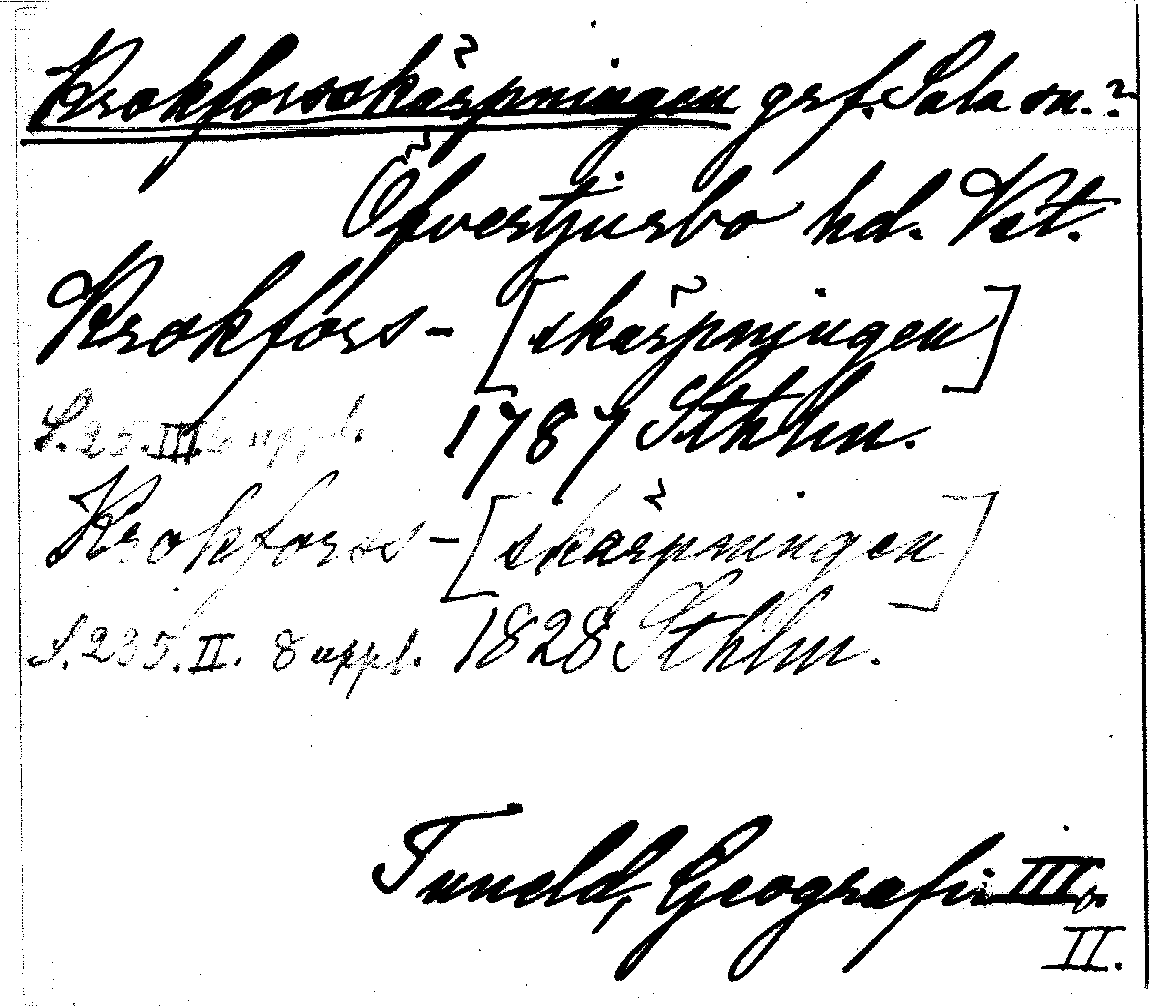 Krokforsskärpningen grf. Sala sn.?
Öfvertjurbo hd. Vst.
Krokfors- [skärpningen]
S. 25. III. 6 uppl. 1787 Sthlm.
Krokforss- [skärpningen]
S. 235. II. 8 uppl. 1828 Sthlm.
Tuneld, Geografi III.
II.